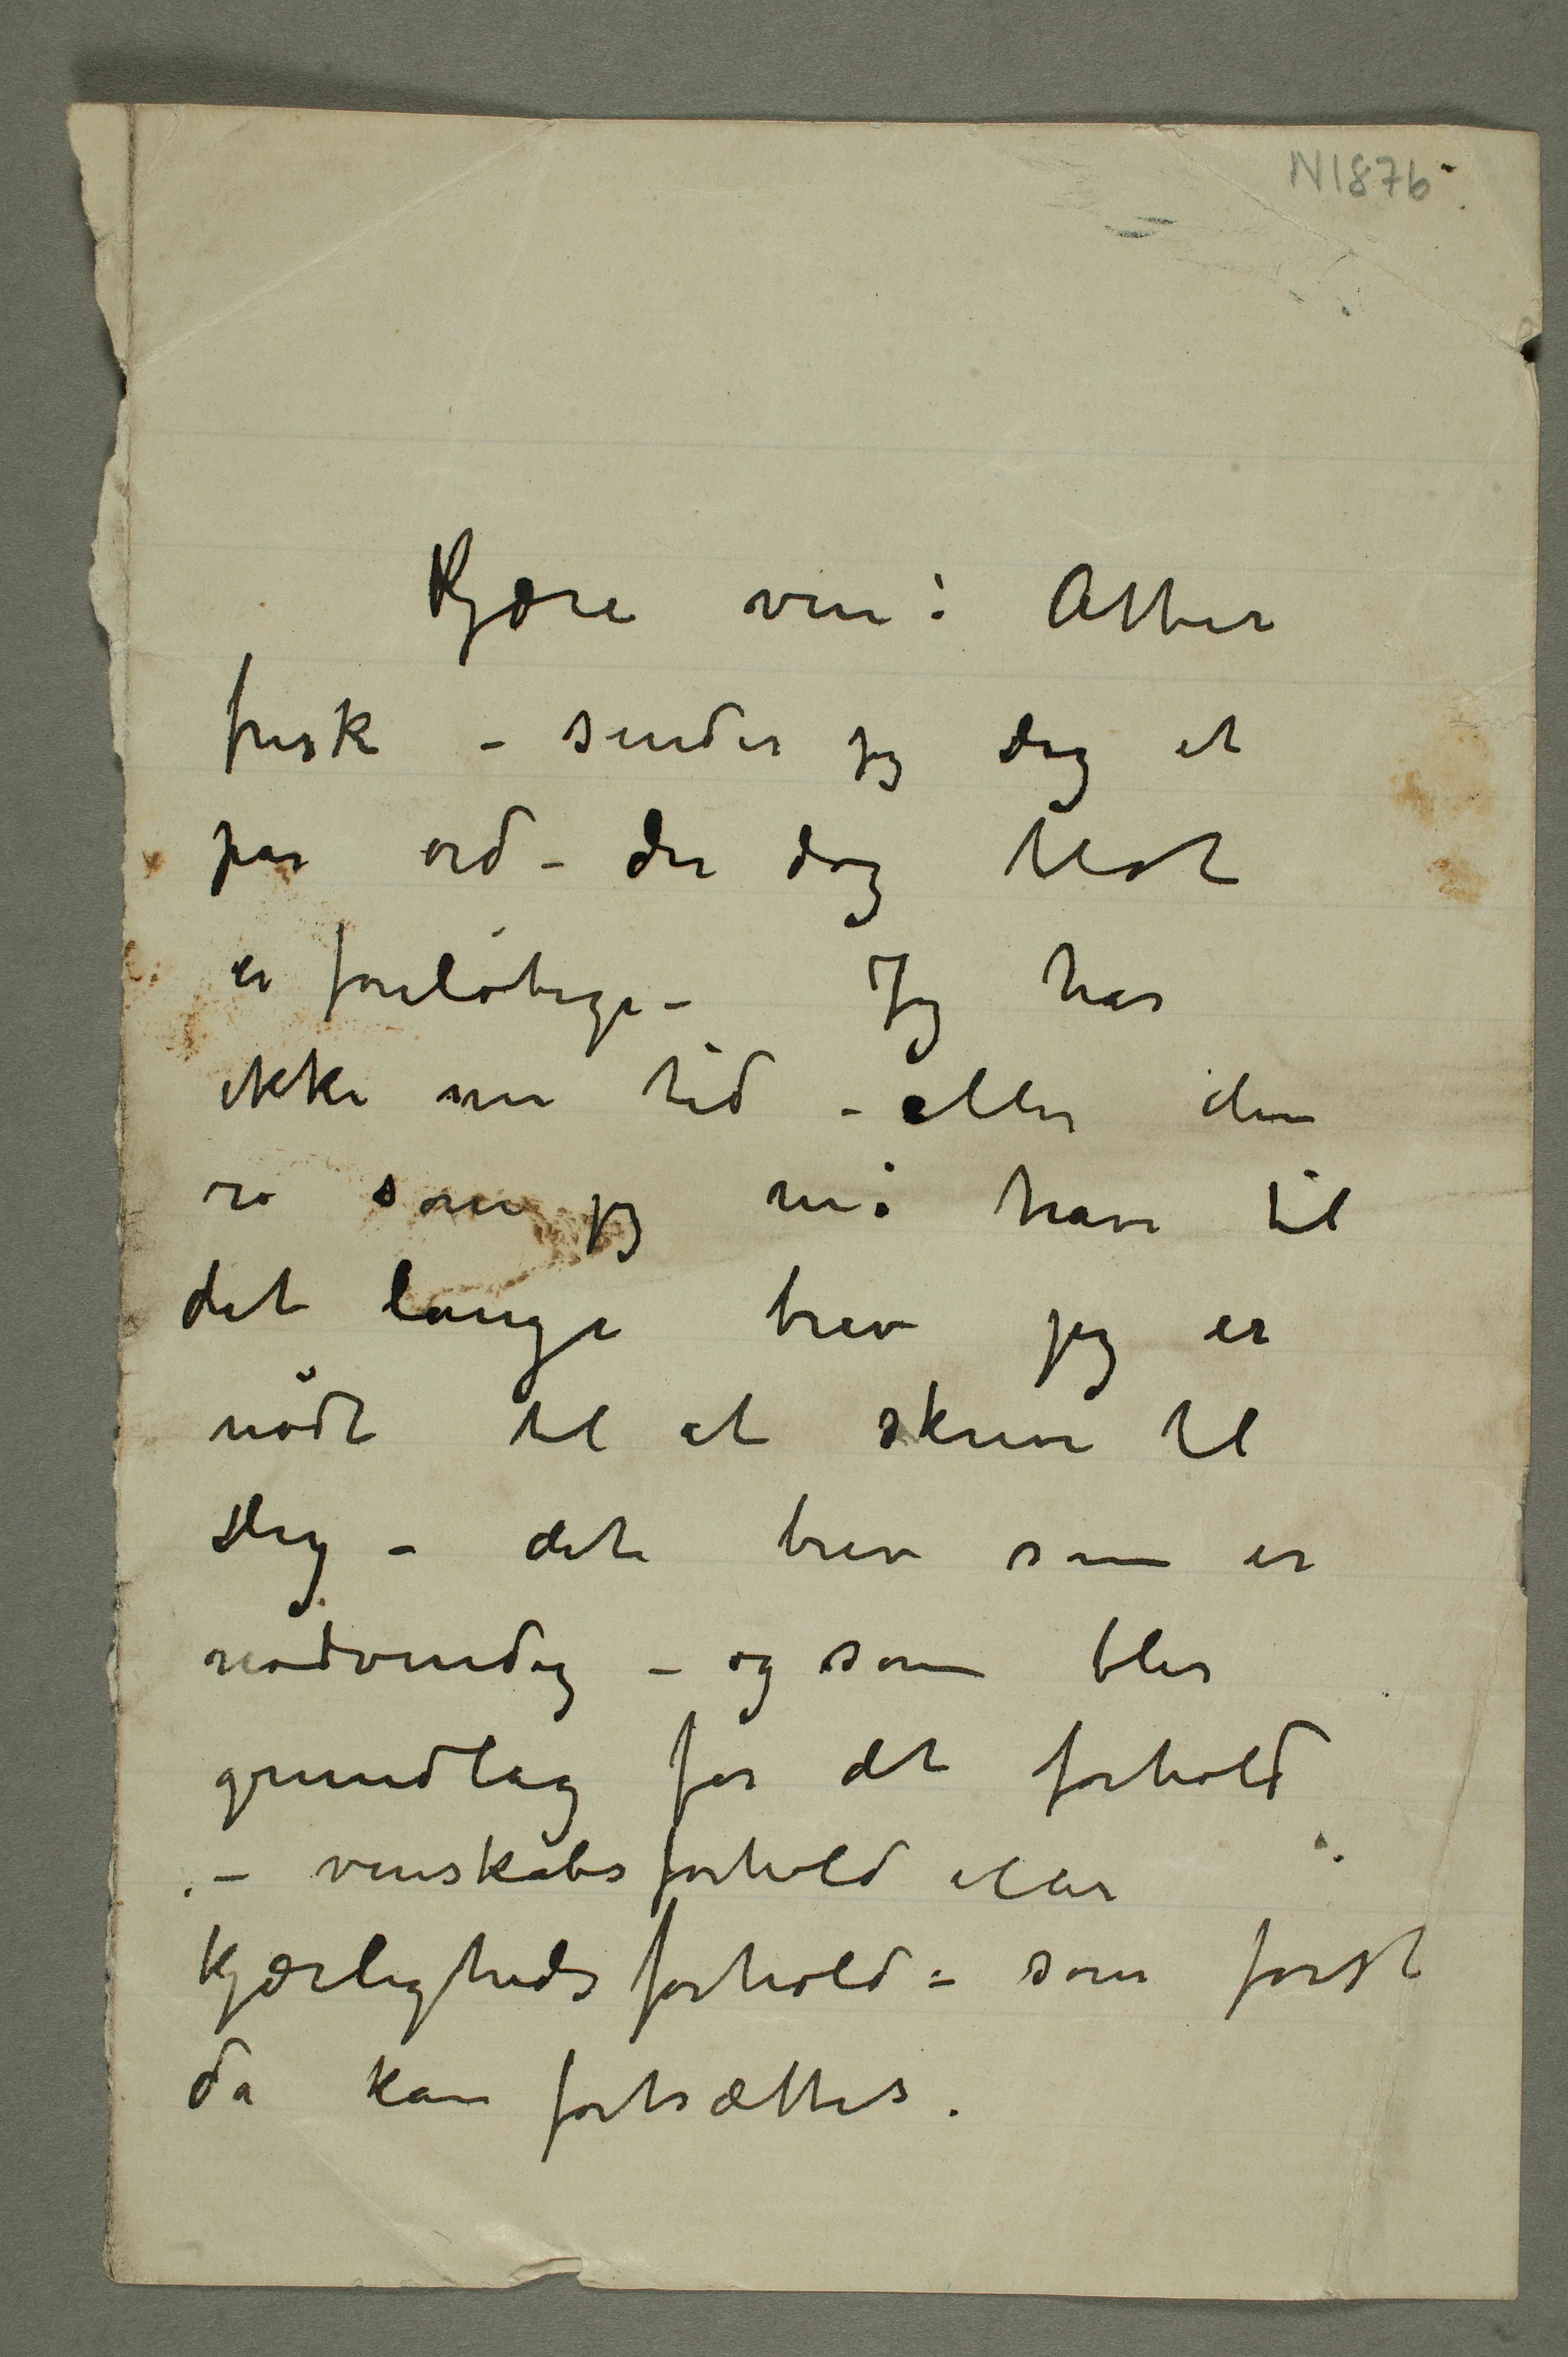 N1876
Kjære ven! Atter
frisk – sender jeg dig et
par ord – der dog blot
er foreløbige – Jeg har
ikke nu tid – eller den
ro som jeg må have til
det lange brev jeg er
nødt til at skrive til
Dig – dette brev som er
nødvendig – og som blir
grundlag for det forhold
– venskabsforhold eller
kjærlighedsforhold – som først
da kan fortsættes.